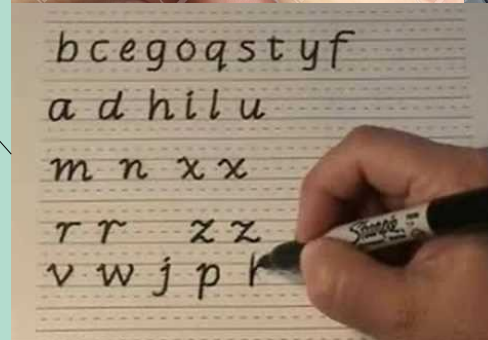 b c e g o q s t y f
a d h i l u
m n x x
r r z z
v w j p
Sharpie